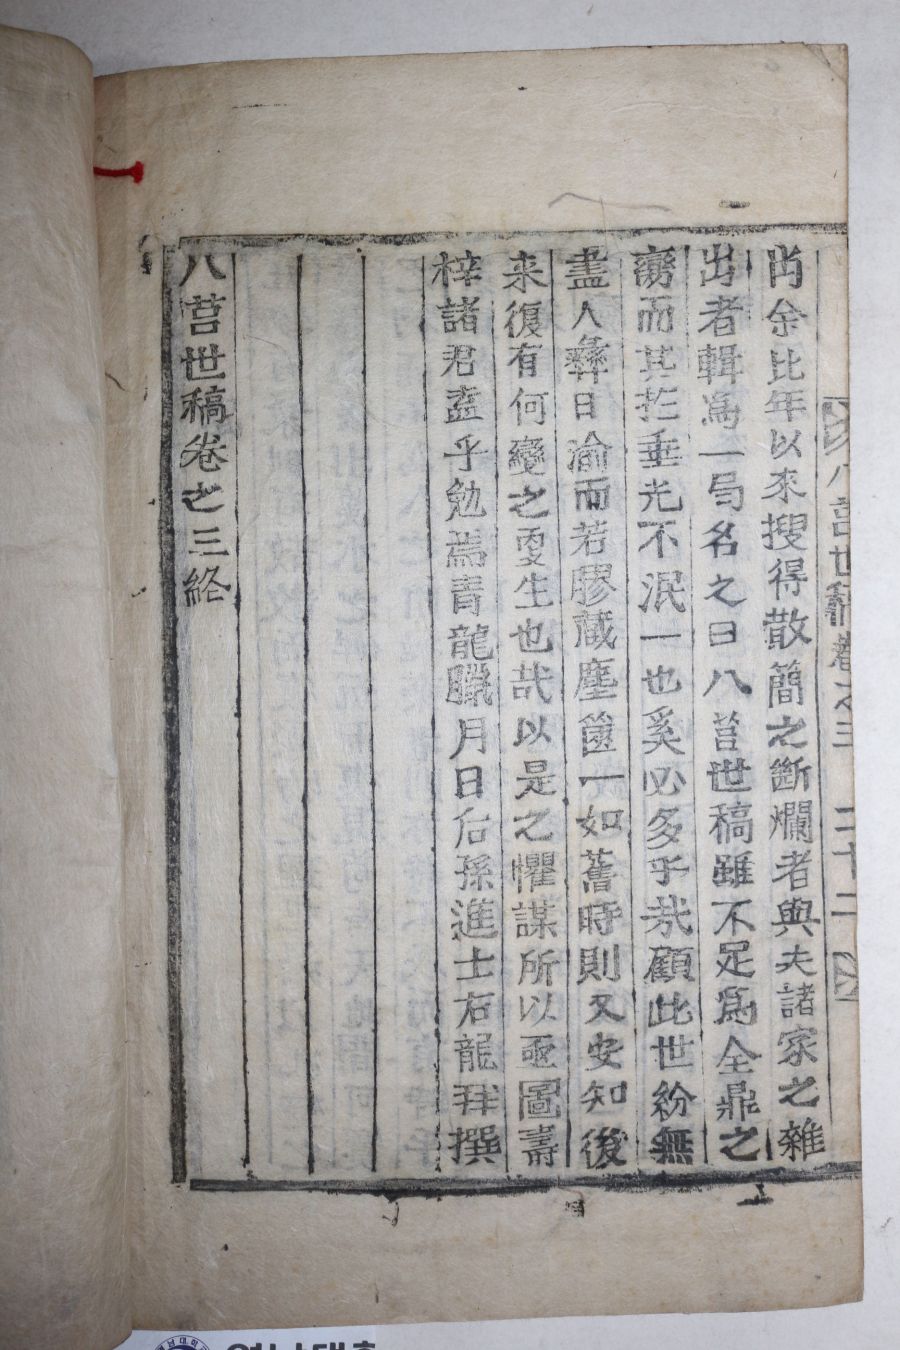 八莒世稿卷之三 二十二
肖余比年以來搜得散簡之斷爛者與夫諸家之雜
出者輯為一局名之曰八莒世稿雖不足為全鼎之
臠而其茫垂光不泯一也奚必多乎㦲顧此世紛無
盡人彝日渝而若膠藏塵篋一如舊時則又安知後
来復有何變之更生也㦲以是之懼謀所以亟圖壽
梓諸君盍乎勉焉青龍臘月日后孫進士右龍拜撰
八莒世稿卷之三終